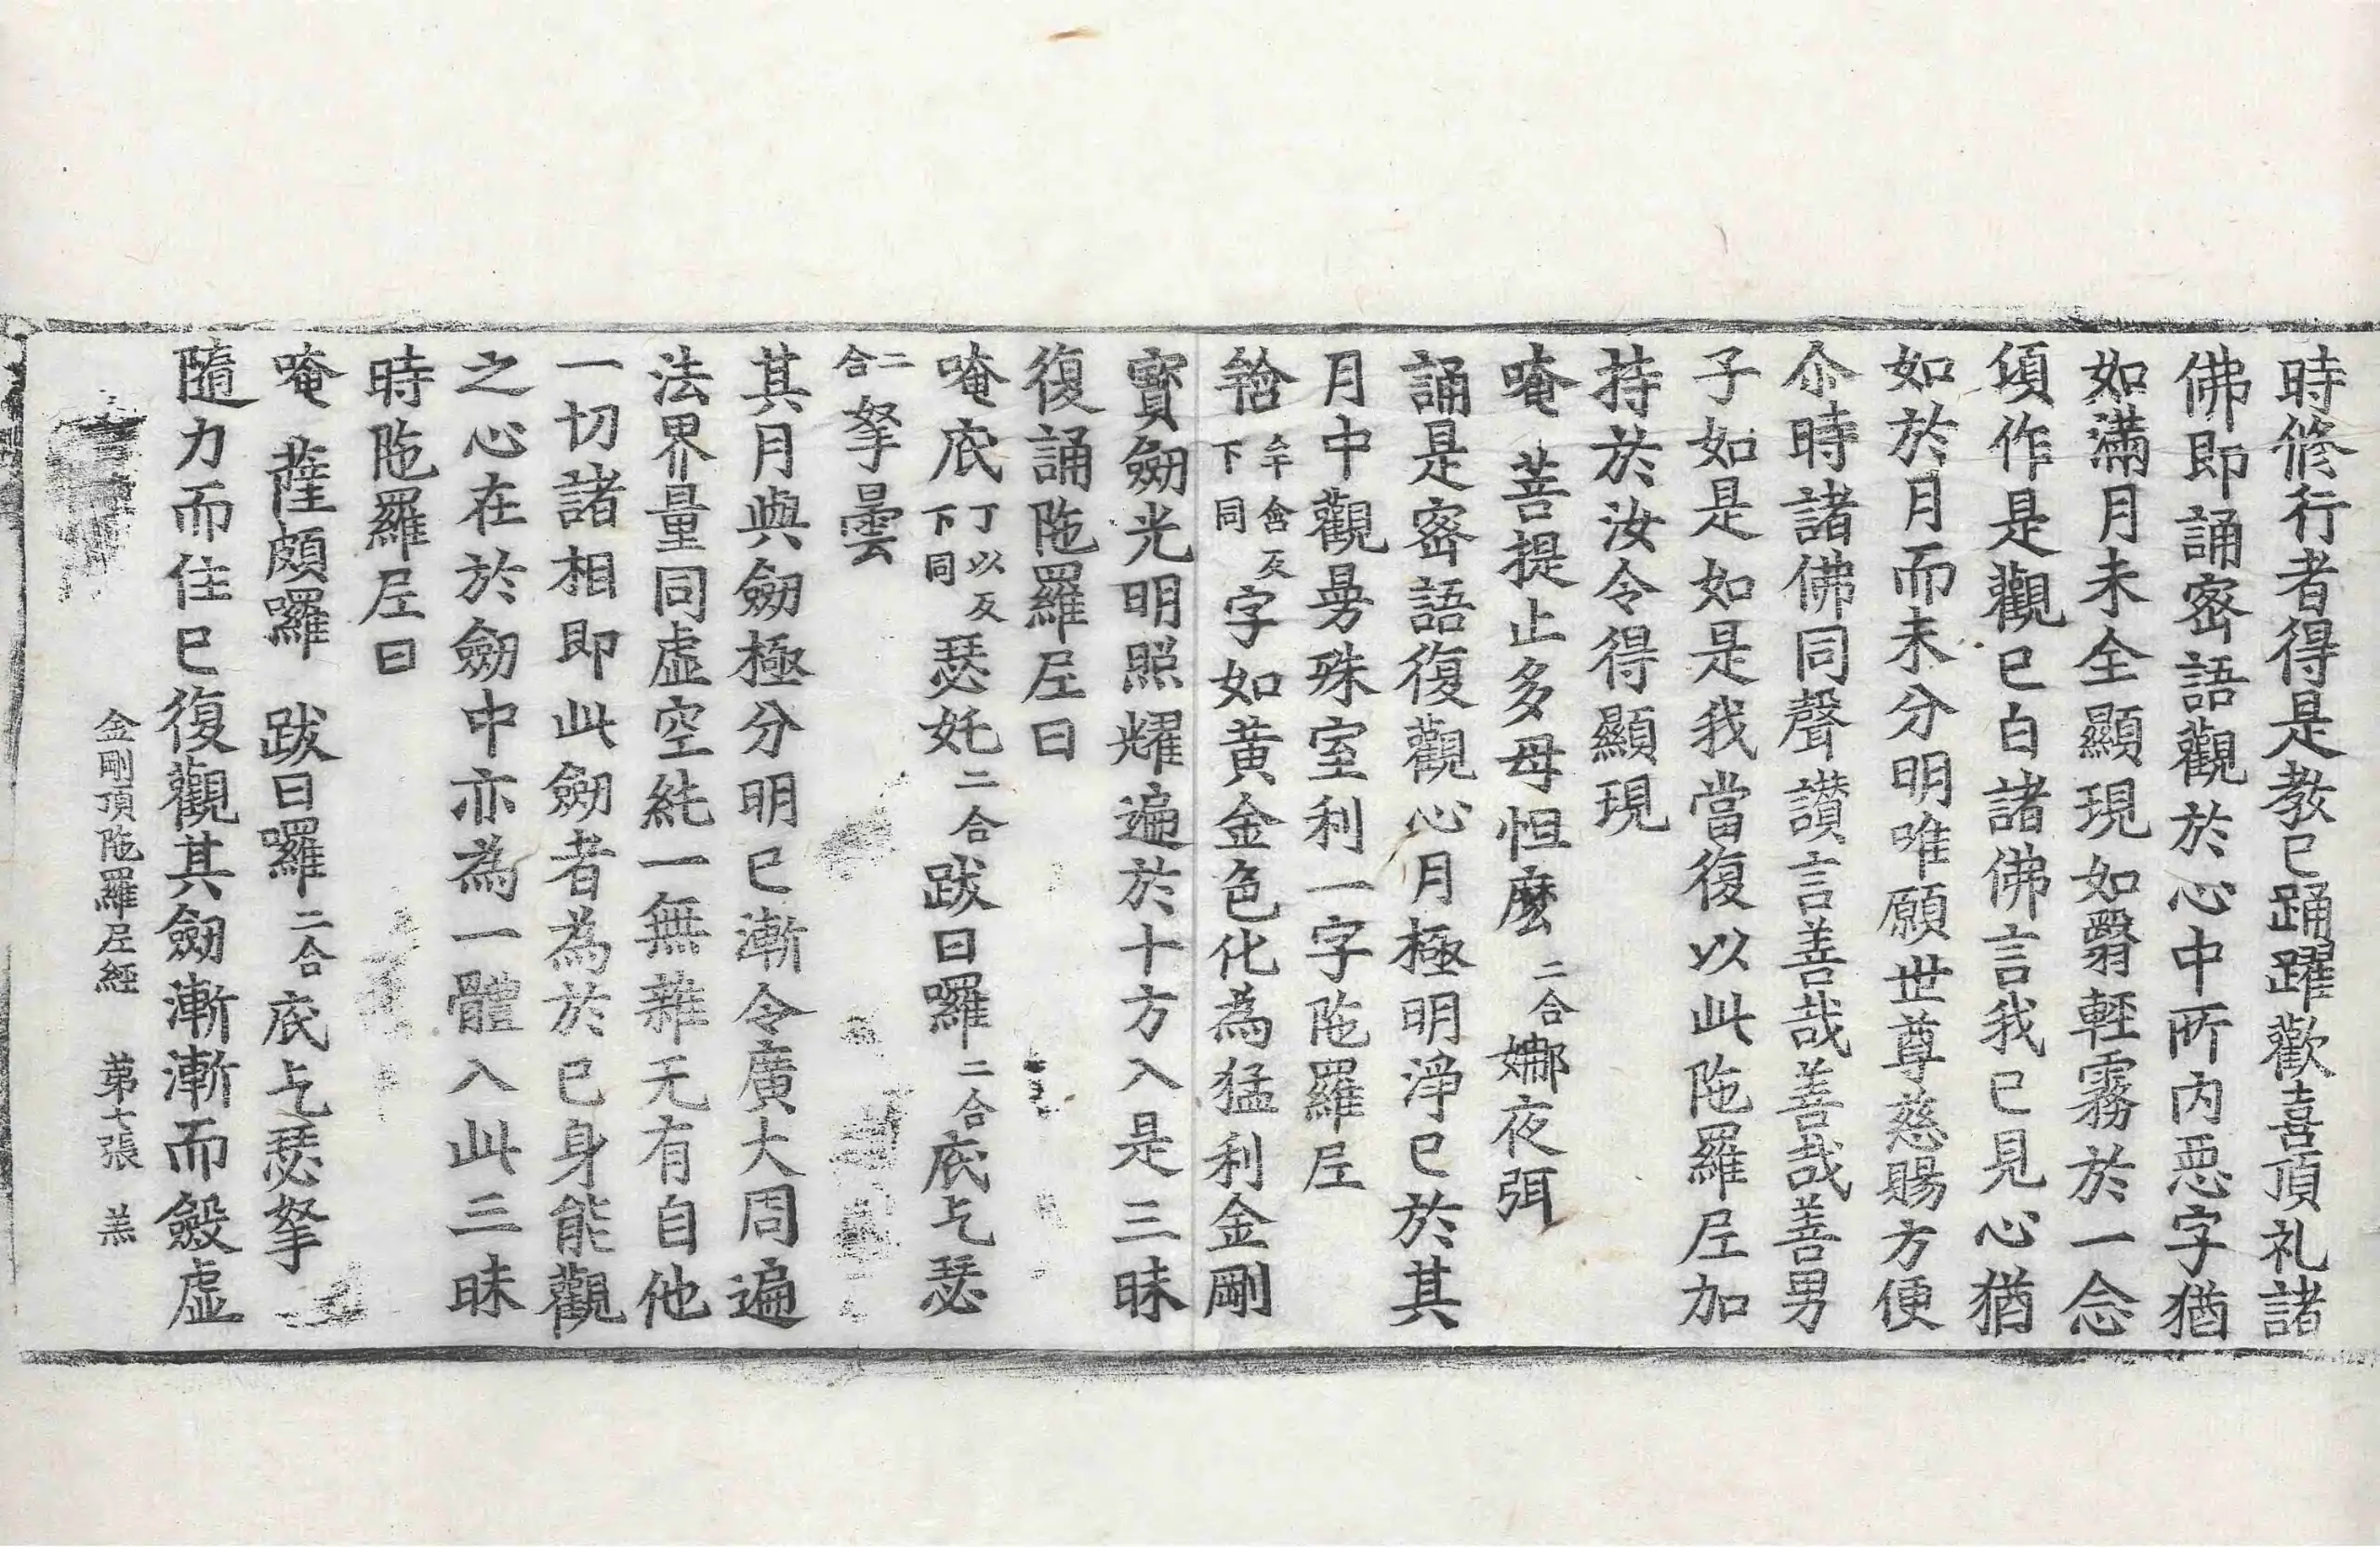 時修行者得是教已踊躍歡喜頂礼諸
佛即誦密語觀於心中所内惡字猶
如滿月未全顯現如翳輕霧於一念
頃作是觀已白諸佛言我已見心猶
如於月而未分明唯願世尊慈賜方便
尒時諸佛同聲讃言善哉善哉善男
子如是如是我當復以此陁羅尼加
持於汝令得顯現
唵 菩提止多母怛麽二合娜夜弭
誦是密語復觀心月極明淨已於其
月中觀曼殊室利一字陁羅尼
字如黄金色化為猛利金剛
寳劒光明照耀遍於十方入是三昧
復誦陁羅尼曰
唵底丁以反下同瑟奼二合跋日囉二合底乞瑟
二合拏曇
其月與劒極分明已漸令廣大周遍
法界量同虚空純一無雜无有自他
一切諸相即此劒者為於已身能觀
之心在於劒中亦為一體入此三昧
時陁羅尼曰
唵 薩頗囉 跋日囉二合底乞瑟拏
隨力而住已復觀其劒漸漸而斂虚
金剛頂陁羅尼經 苐七張 羔